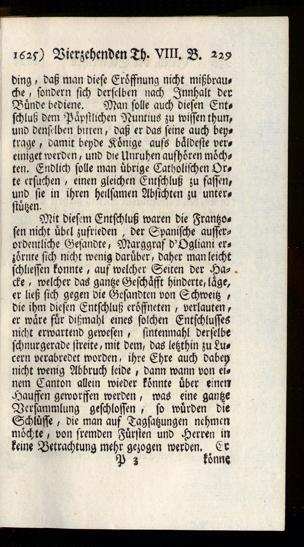 1625) Vierzehenden Th. VIII. B. 229
ding, daß man diese Eröffnung nicht mißbrau-
che, sondern sich derselben nach Innhalt der
Bünde bediene. Man solle auch diesen Ent-
schluß dem Päpstlichen Nuntius zu wissen thun,
und denselben bitten, daß er das seine auch bey-
trage, damit beyde Könige aufs bäldeste ver-
einiget werden, und die Unruhen aufhören möch-
ten. Endlich solle man übrige Catholischen Or-
te ersuchen, einen gleichen Entschluß zu fassen,
und sie in ihren heilsamen Absichten zu unter-
stützen.
Mit diesem Entschluß waren die Frantzo-
sen nicht übel zufrieden, der Spanische ausser-
ordentliche Gesandte, Marggraf d'Ogliani er-
zörnte sich nicht wenig darüber, daher man leicht
schliessen konnte, auf welcher Seiten der Ha-
cke, welcher das gantze Geschäfft hinderte, läge,
er ließ sich gegen die Gesandten von Schweitz,
die ihm diesen Entschluß eröffneten, verlauten,
er wäre für dißmahl eines solchen Entschlusses
nicht erwartend gewesen, sintenmahl derselbe
schnurgerade streite, mit dem, das letzthin zu Lu-
cern verabredet worden, ihre Ehre auch dabey
nicht wenig Abbruch leide, dann wann von ei-
nem Canton allein wieder könnte über einen
Hauffen geworffen werden, was eine gantze
Versammlung geschlossen, so würden die
Schlüsse, die man auf Tagsatzungen nehmen
möchte, von fremden Fürsten und Herren in
keine Betrachtung mehr gezogen werden. Er
P 3 könne